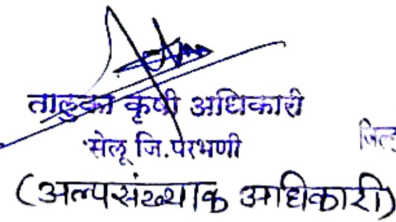 तालुका कृषी अधिकारी
सेलू जि.परभणी
(अल्पसंख्याक अधिकारी)